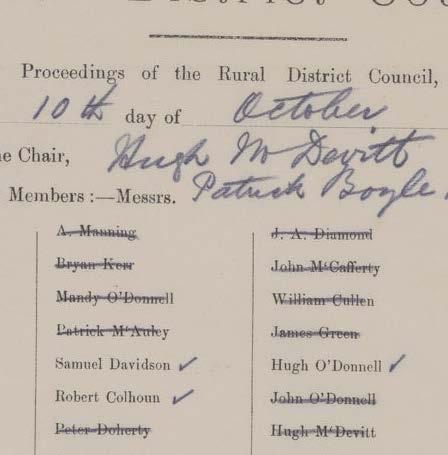 Proceedings of the Rural District Council,
10th day of October
Chair, Hugh McDevitt
Members :—Messrs. Patrick Boyle
A. Manning
Bryan Kerr
Mandy O'Donnell
Patrick M'Auley
Samuel Davidson ✓
Robert Colhoun ✓
Peter Doherty
J. A. Diamond
John M'Cafferty
William Cullen
James Green
Hugh O'Donnell ✓
John O'Donnell
Hugh M'Devitt